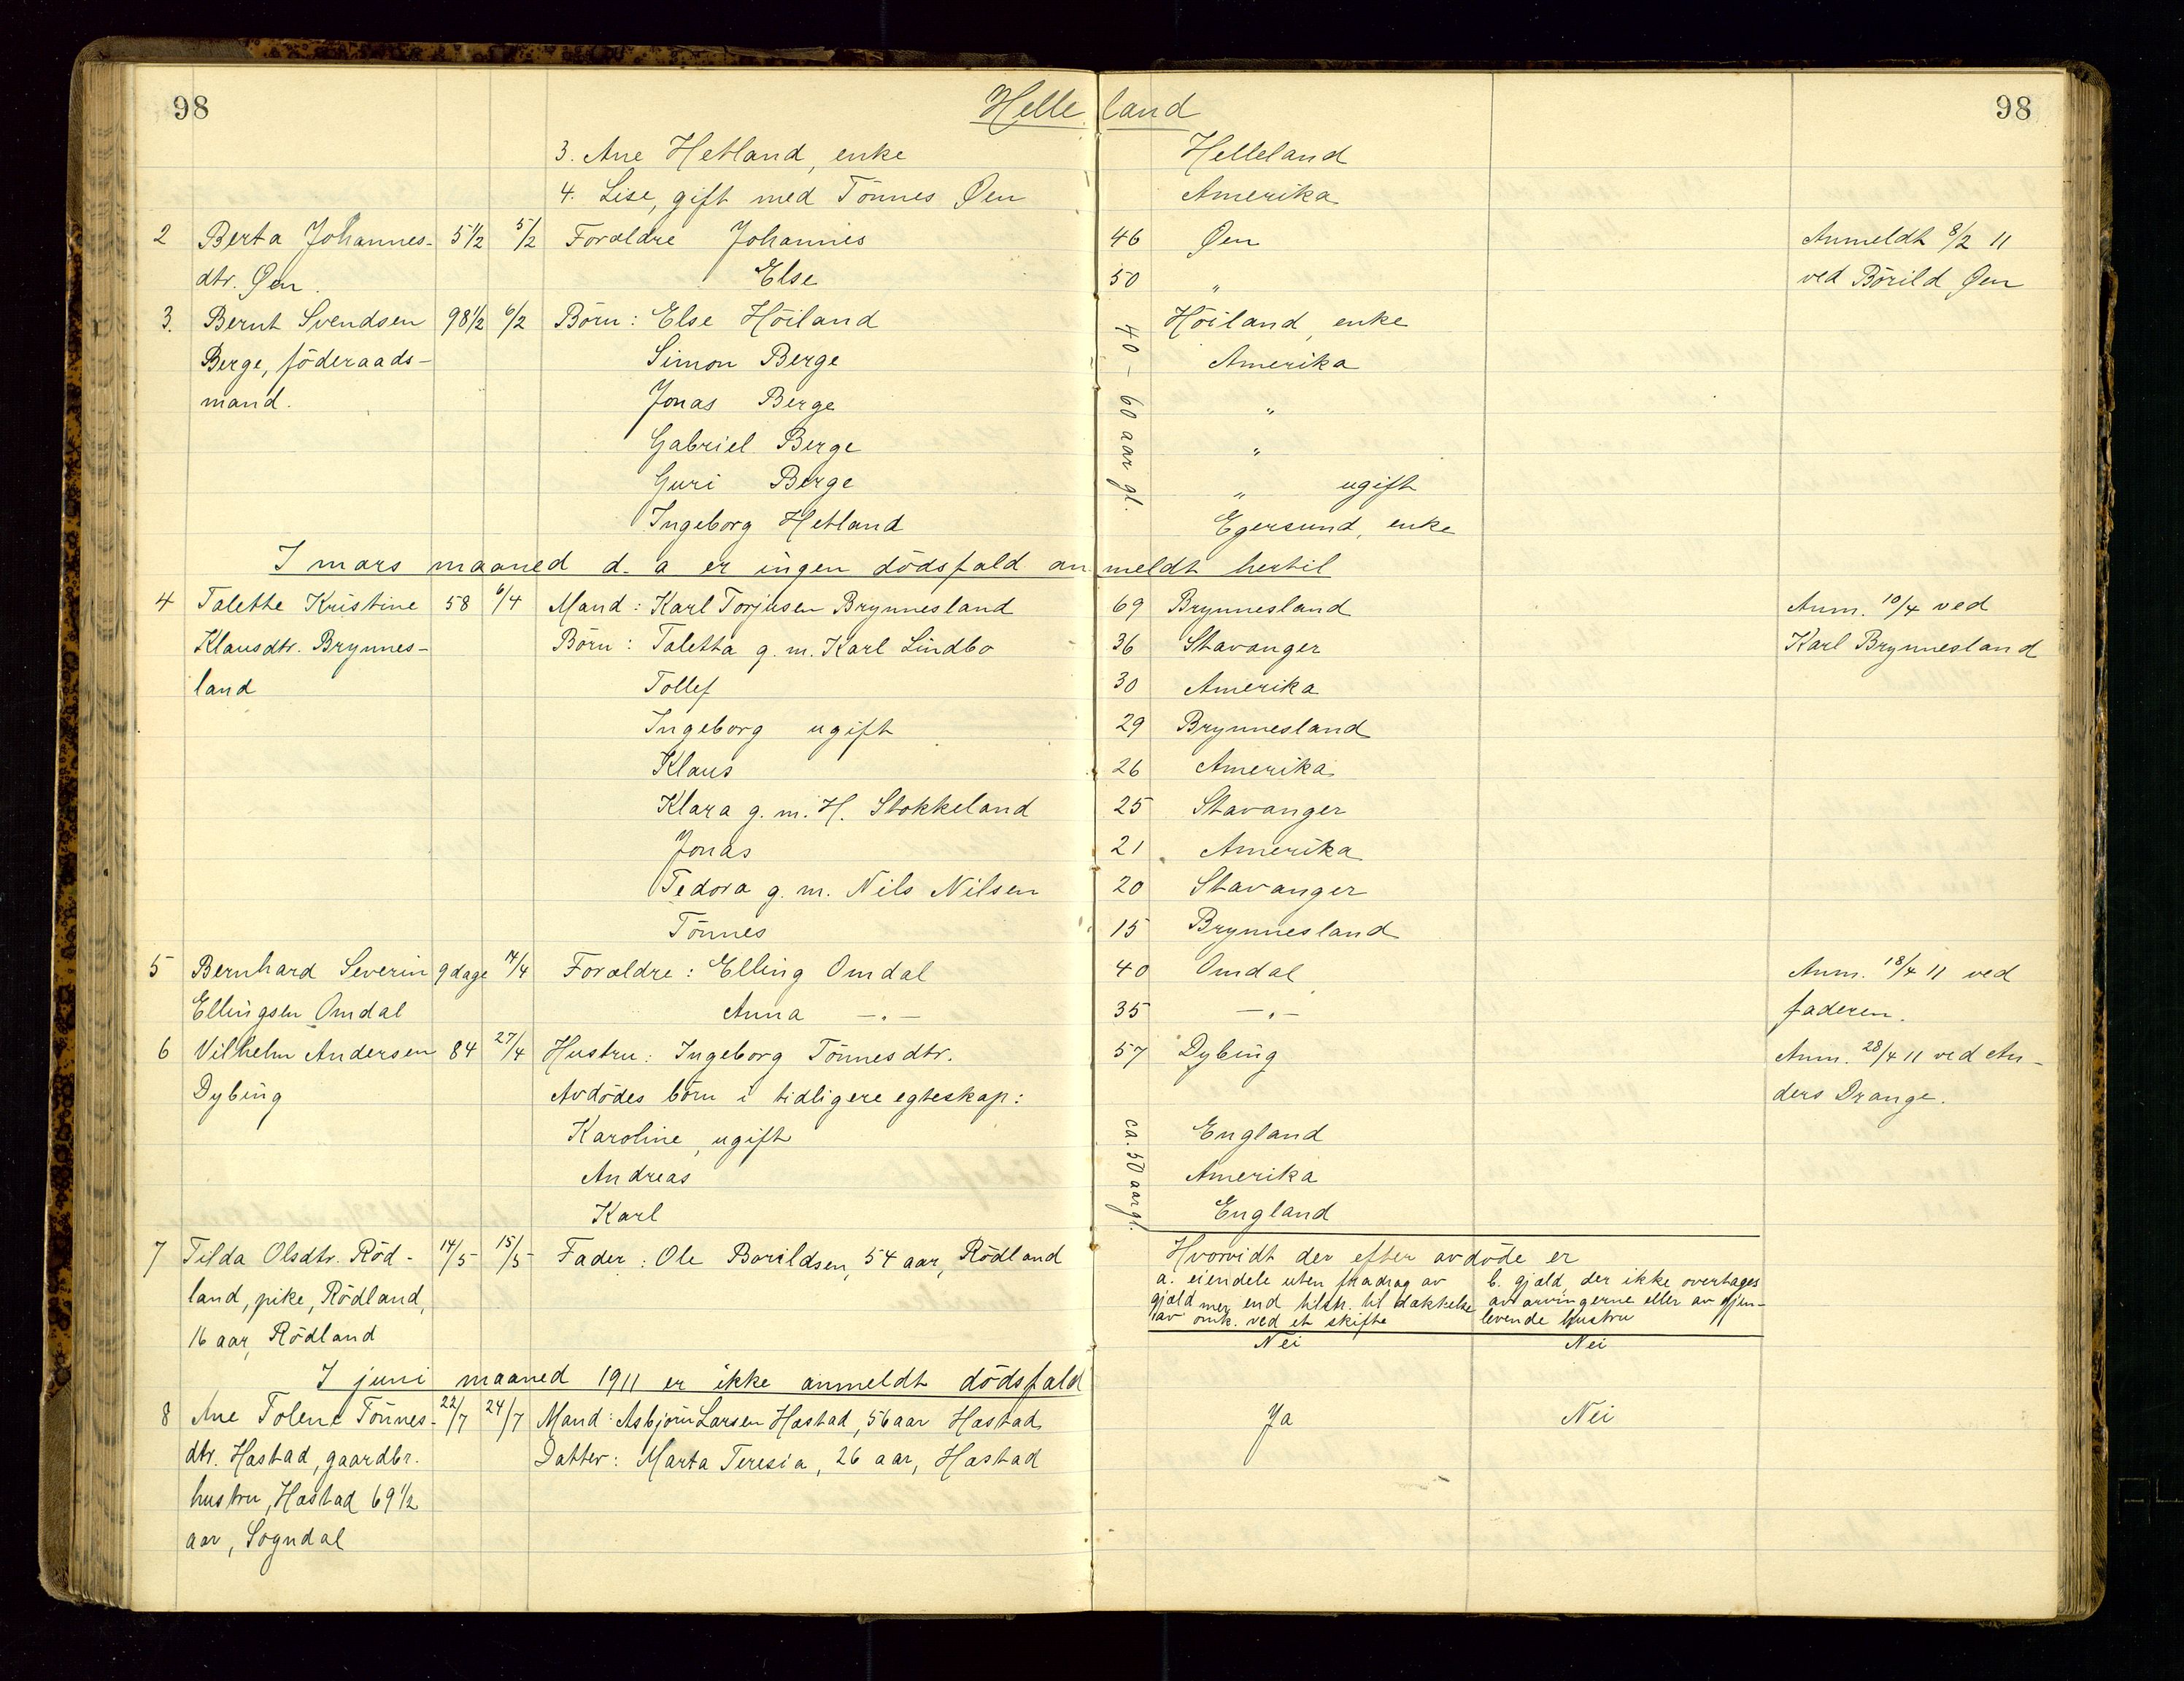 98 Helleland 98
3. Ane Hetland, enke Helleland
4. Lise, gift med Tönnes Øen Amerika
2 Berta Johannes- 5 1/2 5/2 Forældre Johannes 46 Øen Anmeldt 8/2 11
dtr. Øen. Else 50 „ ved Börild Øen
3. Bernt Svendsen 98 1/2 6/2 Börn: Else Höiland 40 - 60 aar gl. Höiland, enke
Berge, föderaads- Simon Berge Amerika
mand. Jonas Berge „
Gabriel Berge „
Guri Berge „ ugift
Ingeborg Hetland Egersund, enke
I mars maaned d. a er ingen dödsfald anmeldt hertil
4 Talette Kristine 58 6/4 Mand: Karl Torjusen Brynnesland 69 Brynnesland Anm. 10/4 ved
Klausdtr. Brynnes- Börn: Taletta g. m. Karl Lindbo 36 Stavanger Karl Brynnesland
land Tollef 30 Amerika
Ingeborg ugift 29 Brynnesland
Klaus 26 Amerika
Klara g. m. H. Stokkeland 25 Stavanger
Jonas 21 Amerika
Tedora g. m. Nils Nilsen 20 Stavanger
Tönnes 15 Brynnesland
5 Bernhard Severin 9 dage /4 Forældre: Elling Omdal 40 Omdal Anm. 18/4 11 ved
Ellingsen Omdal Anna —„— 35 —„— faderen.
6 Vilhelm Andersen 84 27/4 Hustru: Ingeborg Tönnesdtr. 57 Dybing Anm. 28/4 11 ved An-
Dybing Avdödes börn i tidligere egteskap: ders Drange.
Karoline, ugift ca. 50 aar gl. England
Andreas Amerika
Karl England
7 Tilda Olsdtr. Röd- 14/5 15/5 Fader: Ole Borildsen, 54 aar, Rödland Hvorvidt der efter avdöde er
land, pike, Rödland, a. eiendele uten fradrag av b. gjæld, der ikke overtages
gjæld mer end tilstr. til dækkelse av arvingerne eller av gjen-
av omk. ved et skifte levende hustru
16 aar, Rödland Nei Nei
I juni maaned 1911 er ikke anmeldt dödsfald
8 Ane Tolene Tönnes- 22/7 24/7 Mand: Asbjörn Larsen Hæstad, 56 aar Hæstad Ja Nei
dtr. Hæstad, gaardbr. Datter: Marta Teresia, 26 aar, Hæstad
hustru, Hæstad 69 1/2
aar, Sogndal